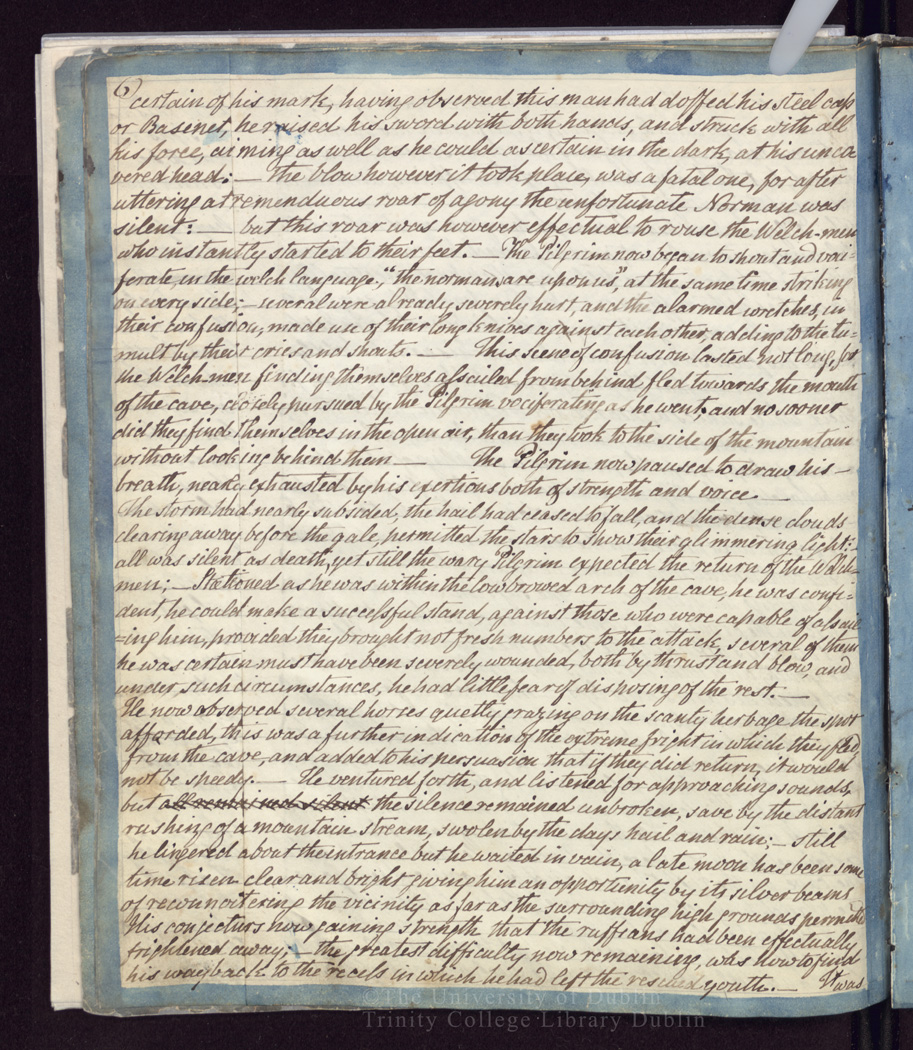 6)
certain of his mark, having observed this man had doffed his steel cap
or Basenet, he raised his sword with both hands, and struck with all
his force, aiming as well as he could ascertain in the dark, at his unco
vered head: — the blow however it took place, was a fatal one, for after
uttering a tremenduous roar of agony the unfortunate Norman was
silent: — but this roar was however effectual to rouse the Welch-men
who instantly started to their feet. — The Pilgrim now began to shout and voci-
ferate, in the welch language, "the normans are upon us", at the same time striking
on every side; — several were already severely hurt, and the alarmed wretches, in
their confusion, made use of their long knives against each other, adding to the tu=
mult by their cries and shouts. — This scene of confusion lasted not long, for
the Welch-men finding themselves assailed from behind fled towards the mouth
of the cave, closely pursued by the Pilgrim vociferating as he went, and no sooner
did they find themselves in the open air, than they took to the side of the mountain
without looking behind them — The Pilgrim now paused to draw his —
breath, nearly exhausted by his exertions both of strength and voice —
The storm had nearly subsided, the hail had ceased to fall, and the dense clouds
clearing away before the gale, permitted the stars to show their glimmering light: —
all was silent as death, yet still the wary Pilgrim expected the return of the Welch-
men; — Stationed as he was within the low browed arch of the cave, he was confi-
dent, he could make a successful stand, against those who were capable of assail
=ing him, provided they brought not fresh numbers to the attack, several of them
he was certain must have been severely wounded, both by thrust and blow, and
under such circumstances, he had little fear of disposing of the rest. —
He now observed several horses quetly grazing on the scanty herbage the spot
afforded, this was a further indication of the extreme fright in which they fled
from the cave, and added to his persuasion that if they did return, it would
not be speedy. — He ventured forth, and listened for approaching sounds,
but all remained silent the silence remained unbroken, save by the distant
rushing of a mountain stream, swolen by the days hail and rain; — still
he lingered about the intrance but he waited in vain, a late moon has been some
time risen clear and bright giving him an opportunity by its silver beams
of reconnoitering the vicinity as far as the surrounding high grounds permitted
His conjecture now gaining strength that the ruffians had been effectually
frightened away; — the greatest difficulty now remaining, was how to find
his way back to the recess in which he had left the rescued youth. — It was
©The University of Dublin
Trinity College Library Dublin